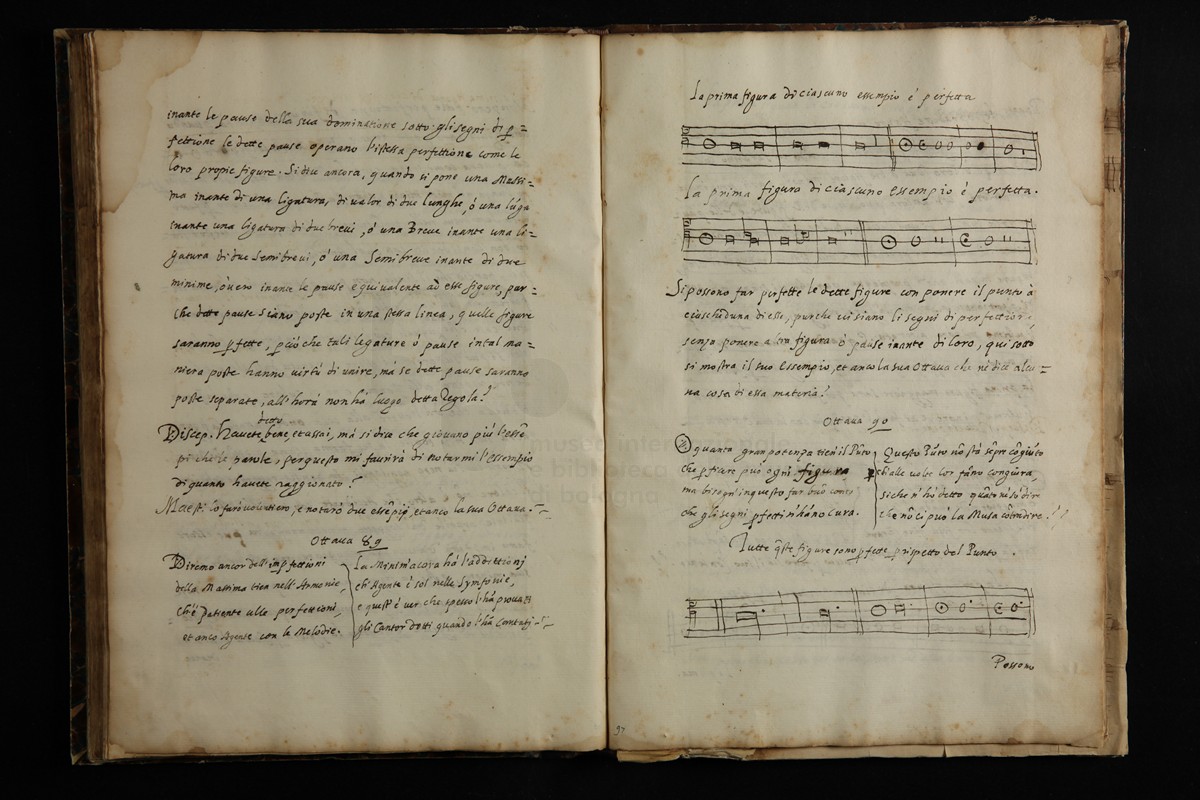 inante le pause della sua dominatione sotto gli segni di p=
fettione le dette pause operano l'istessa perfettione come le
loro propie figure. Si dice ancora, quando si pone una Massi=
ma inante di una ligatura, di valor di due lunghe, ò una lũga
inante una ligatura di due brevi, ò una Breve inante una li=
gatura di due semibrevi, ò una Semibreve inante di due
minime, òvero inante le pause equivalente ad esse figure, pur=
che dette pause siano poste in una stessa linea, quelle figure
saranno pfette, pciò che tali legature ò pause in tal ma=
niera poste hanno virtù di unire, má se dette pause saranno
poste separate, all'horá non há luogo detta Regola?
detto
Discep. Havete bene, et assai, má si dice che giovano più l'essē
pi che le parole, perquesto mi favirá di notarmi l'essempio
di quanto havete raggionato?
Maest. Lo faró volentiero, e notaró due essēpij, et anco la sua Ottava.
Ottava 89
Diremo ancor dell'impfettioni
della Massima tien nell'Armonie,
Ch'è Patiente alle perfettioni,
et anco Agente con le Melodie.
La Minim'ācora há l'addiettionj
ch'Agente è sol nelle Symfonie,
e quest'è ver che spesso l'há provati
gli Cantor dotti quando l'hā
La prima figura di ciascuno essempio é perfetta
La prima figura di ciascuno essempio é perfetta.
Si possono far perfette le dette figure con ponere il punto á
ciascheduna di esse, purche vi siano li segni di perfettione,
senza ponere altra figura ò pause inante di loro, qui sotto
si mostra il suo essempio, et anco la sua Ottava che ni dice alcu=
na cosa di essa materia?
Ottava 90
O quanta gran potenza tien il Pũto
che pficare puó ogni figura
ma bisogn'in questo far buõ conto
che gli segni pfetti n'háno cura.
Questo Pũto nõ stá sēpre cõgiũto
ch'alle volte lor fãno congiura,
siche n'hó detto quãto ne só dire
che nõ ci puó la Musa cõtradire.
Tutte q̃ste figure sono pfette prispetto del Punto.
Possono
97
museo internazionale
e biblioteca
di bologna